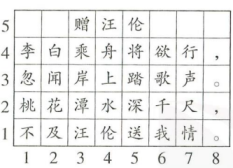 5 赠汪伦
4 李白乘舟将欲行，
3 忽闻岸上踏歌声。
2 桃花潭水深千尺，
1 不及汪伦送我情。
1 2 3 4 5 6 7 8